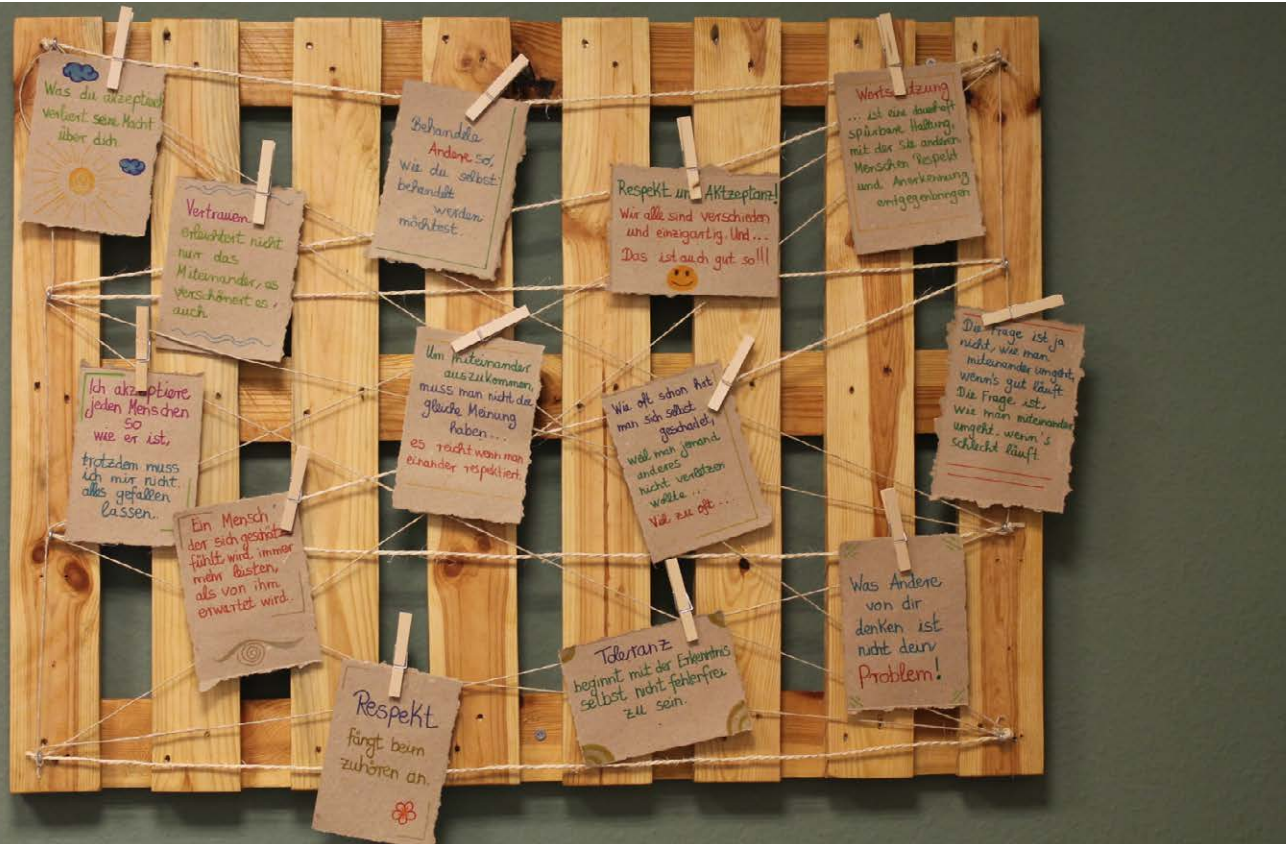 Was du akzeptierst
verliert seine Macht
über dich.
Vertrauen
erleichtert nicht
nur das
Miteinander, es
verschönert es
auch
Behandle
Andere so,
wie du selbst
behandelt
werden
möchtest.
Respekt und Aktzeptanz!
Wir alle sind verschieden
und einzigartig. Und...
Das ist auch gut so!!!
Wertschätzung
... ist eine dauerhaft
spürbare Haltung,
mit der Sie anderen
Menschen Respekt
und Anerkennung
entgegenbringen
Ich akzeptiere
jeden Menschen
so
wie er ist,
trotzdem muss
ich mir nicht
alles gefallen
lassen..
Um miteinander
auszukommen,
muss man nicht die
gleiche Meinung
haben...
es reicht wenn man
einander respektiert.
Wie oft schon hat
man sich selbst
geschadet,
weil man jemand
anderes
nicht verletzen
wollte...
Viel zu oft...
Die Frage ist ja
nicht, wie man
miteinander umgeht,
wenn's gut läuft
Die Frage ist,
wie man miteinander
umgeht, wenn's
schlecht läuft.
Ein Mensch
der sich geschätzt
fühlt, wird immer
mehr leisten,
als von ihm
erwartet wird.
Was Andere
von dir
denken ist
nicht dein
Problem!
Respekt
fängt beim
zuhören an.
Toleranz
beginnt mit der Erkenntnis
selbst nicht fehlerfrei
zu sein.